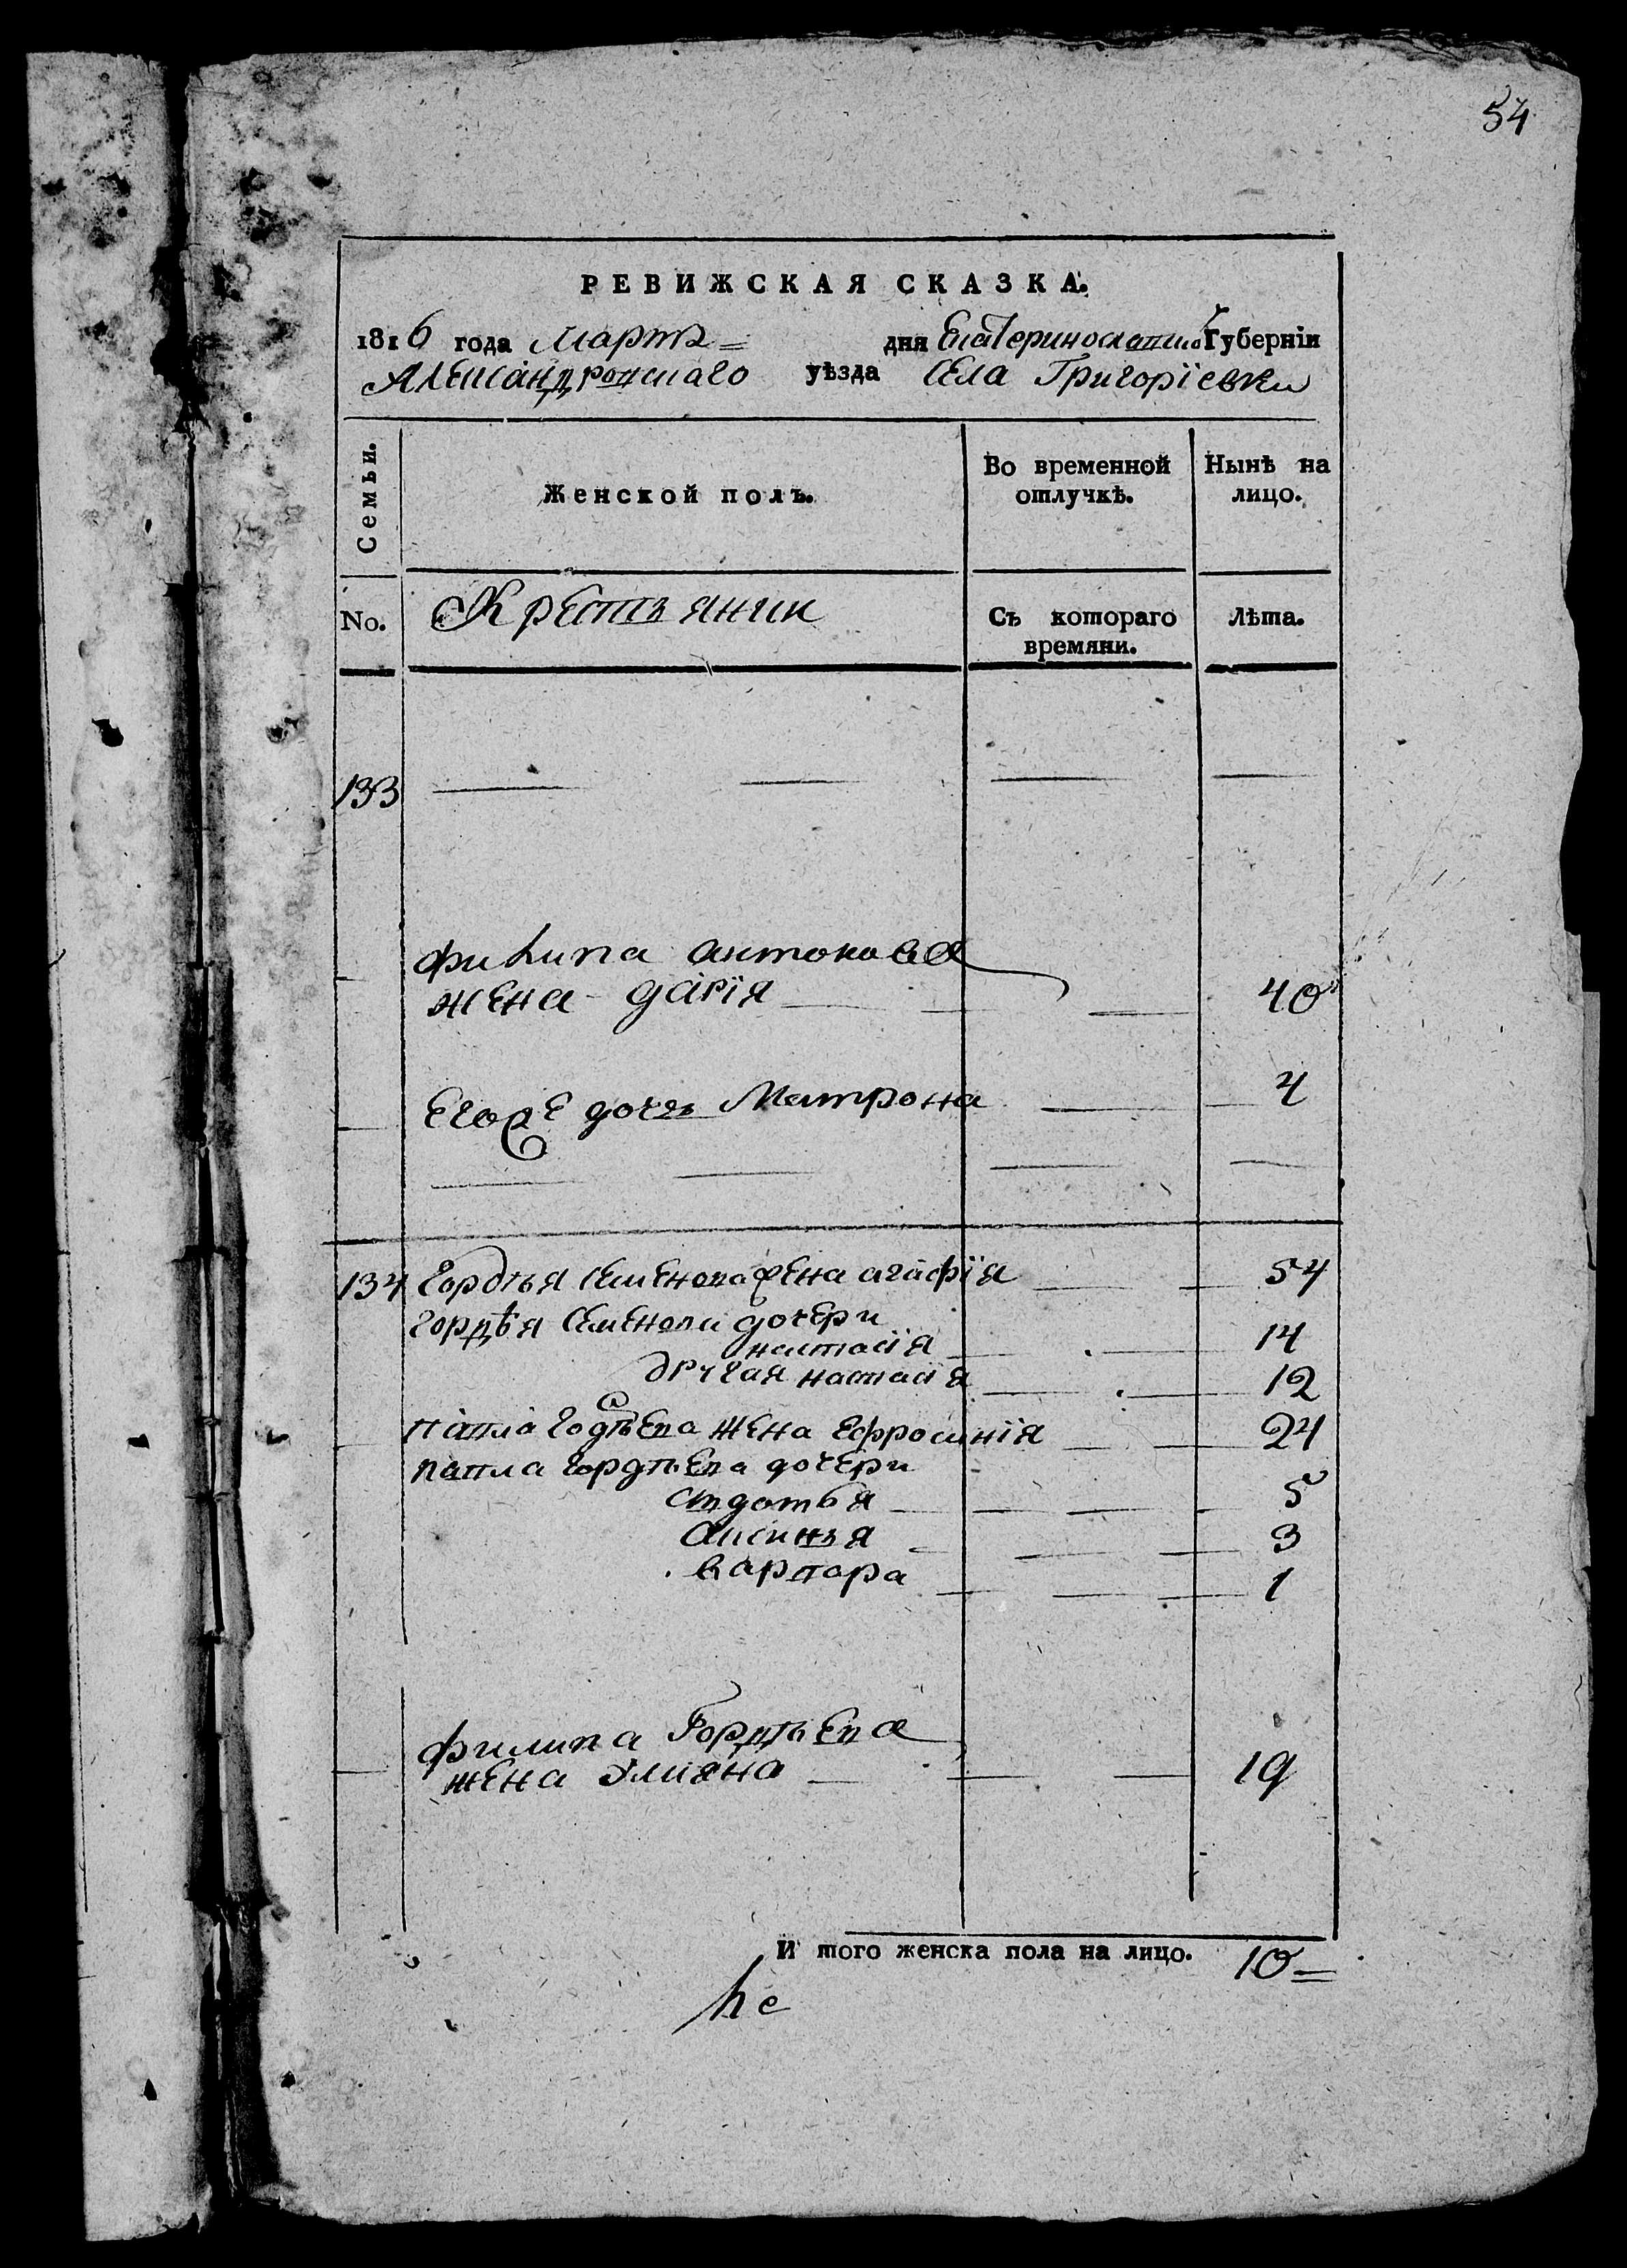 54
РЕВИЖСКАЯ СКАЗКА.
1816 года Мартъ дня Екатеринославской Губерніи
Александровскаго уѣзда Села Григоріевки
Семьи. Женской полъ. Во временной отлучкѣ. Нынѣ на лицо.
No. Крестьянки Съ котораго времяни. Лѣта.
133
Филипа Антонова
жена Дарія 40
Егоже дочь Матрона 4
134 Гордѣя Семенова жена Агафія 54
Гордѣя Семенова дочери
настасія 14
другая настасія 12
павла Годѣева жена Ефросинія 24
павла Гордѣева дочери
5
аксинья 3
варвара 1
Филипа Гордѣева
жена Улияна 19
И того женска пола на лицо. 10